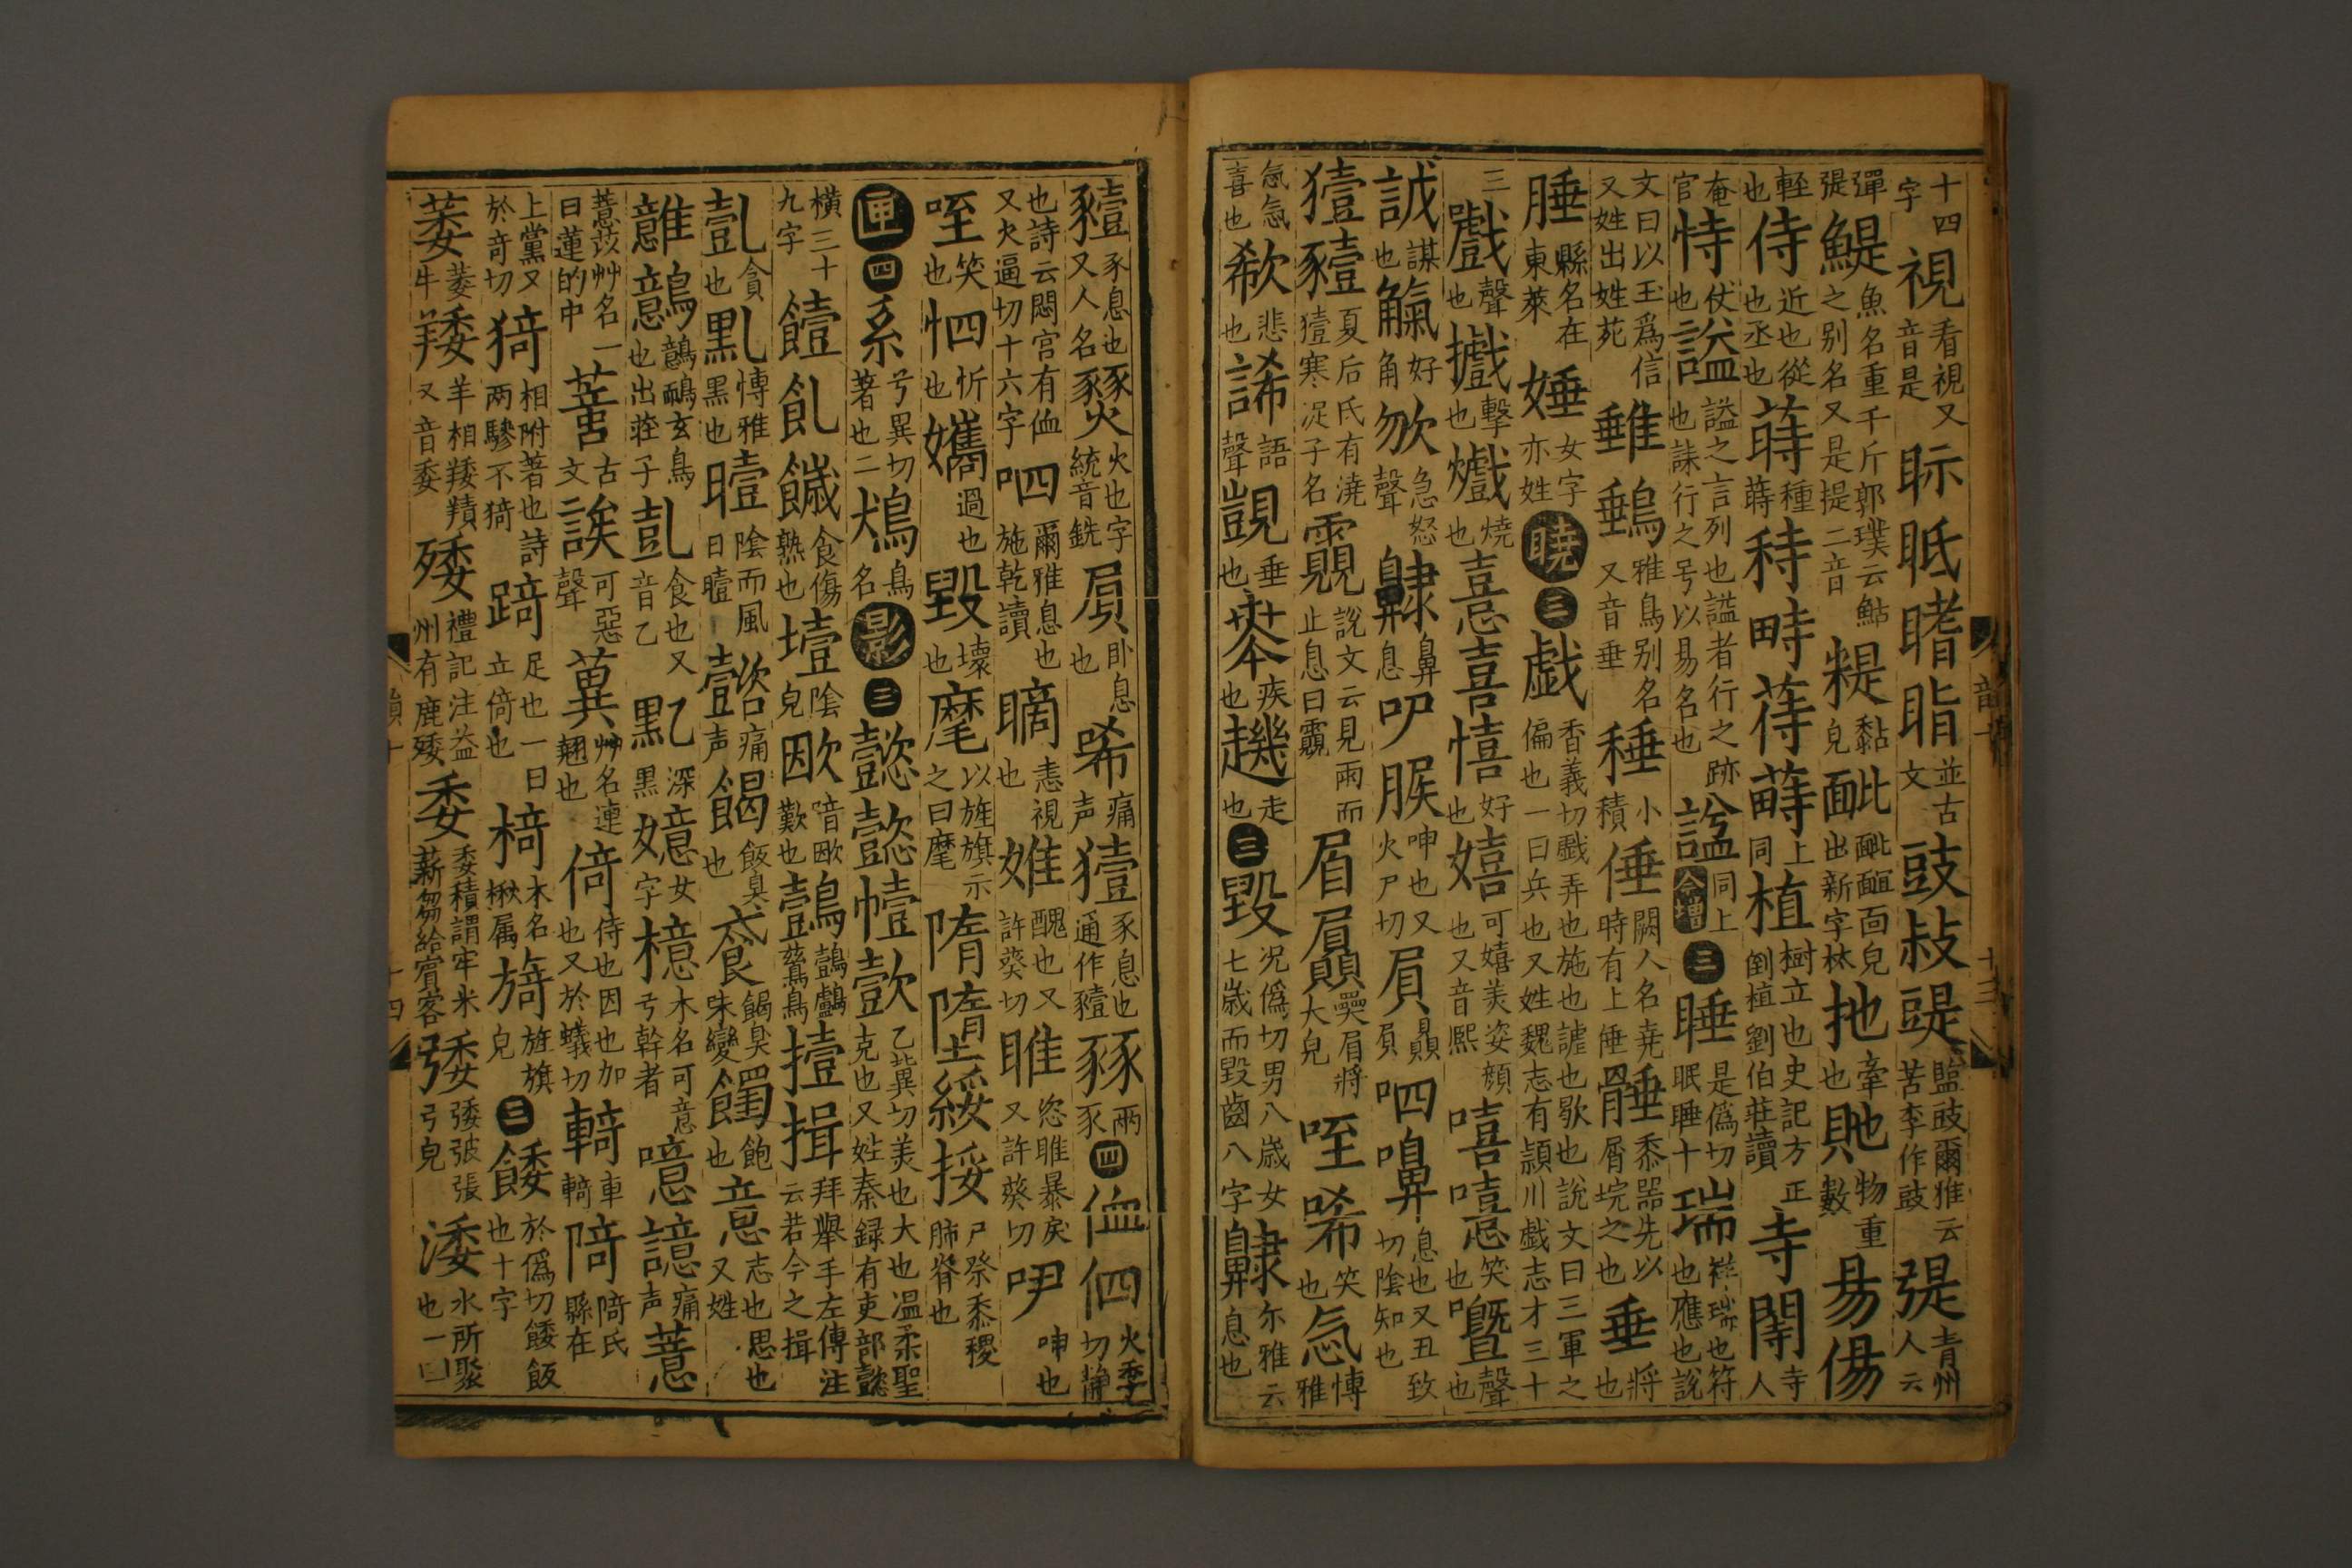 十四字視看視又音是眎眂䁒眡並古文豉敊䜻鹽豉爾雅云苦李作豉㣢青州人云
彈㣢鯷魚名重千斤郭璞云鮎之别名又是提二音䊓黏皃䩆䩆䩉面皃出新字林扡牽也貤物重數昜傷
輊也侍近也從也丞也蒔種蒔秲畤䓁𤳓上同植樹立也史記方倒植劉伯莊讀正寺閈寺人
奄官恃仗也謚謚之言列也謚者行之跡也誄行之号以易名也諡同上今增三睡是僞切眠睡十瑞祥瑞也符也應也說
文曰以玉爲信又姓出姓苑䧴䳠雅鳥别名又音垂種小積倕闕人名堯時有上倕䯔黍器先以屑垸之也垂將也
腄縣名在東萊娷女字亦姓曉三戯香義切戲弄也施也謔也歇也說文曰三軍之偏也一曰兵也又姓魏志有頴川戯志才三十
三嚱聲也㩀擊也爔燒也憙喜憘好也嬉可嬉美姿顔也又音熙嘻噫笑也嘅聲也
誠謀也䚨好角欻急怒聲齂鼻息㕧脵呻也又火尸切屓贔屓呬嚊息也又丑致切陰知也
獖豷夏后氏有澆獖寒浞子名䨳說文云見雨而止息曰䨳眉贔㚃眉將大皃咥唏笑也忥博雅
氣氣喜也欷悲也諦語聲覬垂也桊疾也䟇走也三毀况僞切男八歳女七歳而毀齒八字齂尓雅云息也
豷豕息也又人名燹火也字統音銑屓卧息也唏痛声獖豕息也通作豷豩兩豕四侐㐰火季切静
也詩云閟宮有侐又火逼切十六字呬爾雅息也施乾讀䁤恚視也婎醜也又許葵切睢恣睢暴戾又許葵切吚呻也
咥笑也怬忻也孈過也毀壞也麾以旌旗示之曰麾隋隳綏挼尸祭黍稷肺脊也
匣四系兮異切著也二鳺鳥名影三懿懿㡣㱅乙冀切美也大也温柔聖克也又姓秦録有吏部懿
横三十九字饐飢饖食傷熟也㙪陰皃㰲喑㰲歎也鷧鷧鸕鷀鳥撎揖拜舉手左傳注云若今之揖
亄貪也𪐗博雅黑也曀陰而風曰曀懿㱊痛声餲飯臭也餐餲臭味變䭇飽也意志也思也又姓
雝鷾鷾鴯玄鳥也出莊子亄食也又音乙𪐗深黑嬑女字檍木名可意兮幹者噫譩痛声薏
薏苡艸名一曰蓮的中䓜古文誒可惡聲䔬艸名連翹也倚侍也因也加也又於蟻切輢車輢陭陭氏縣在
上黨又於奇切猗相附著也詩两驂不猗踦足也一曰立倚也椅木名楸属旖旌旗皃三餧於僞切餧飯也十字
萎菱牛矮羊相矮𦎣又音委矮禮記注益州有鹿矮委委積謂牢米薪芻給賓客㣦㣦彼張弓皃涹水所聚也一曰
韻十
十四